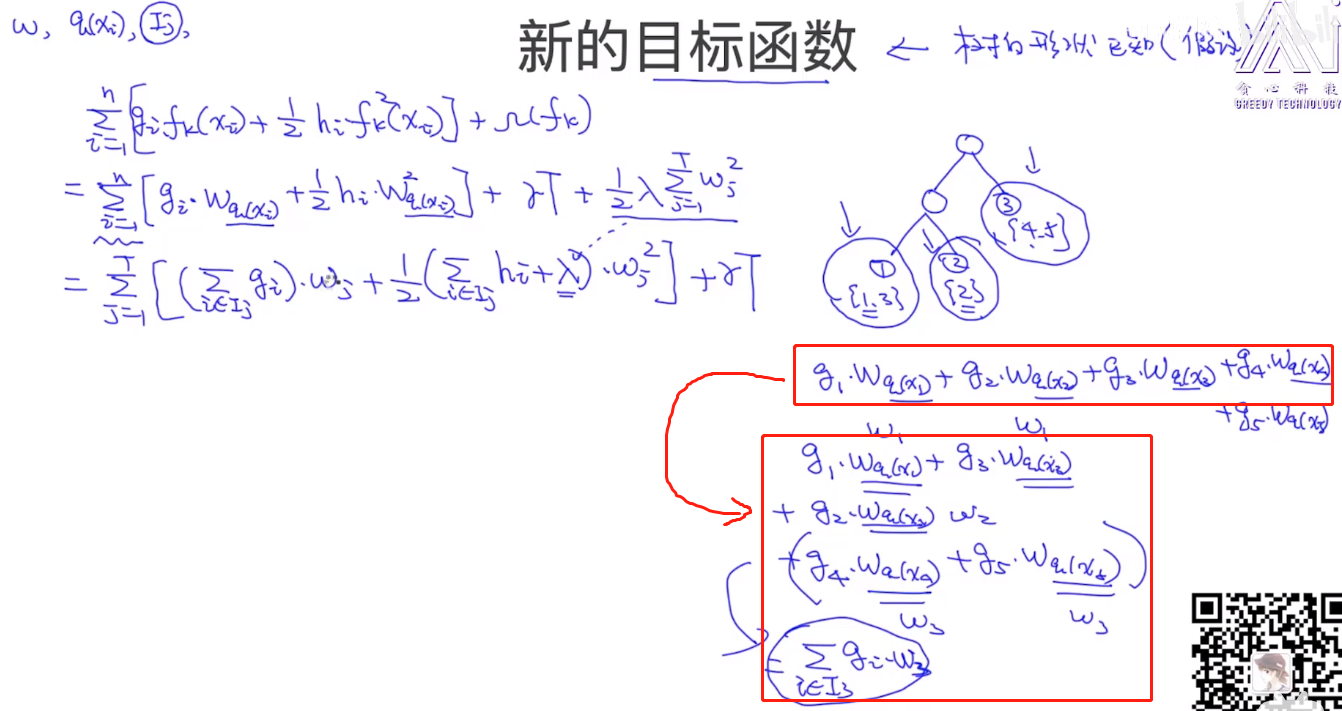 w, q(xᵢ), Iⱼ,
新的目标函数 ← 树的形状已知(假设)
贪心科技
GREEDY TECHNOLOGY
∑ᵢ₌₁ⁿ [gᵢ fₖ(xᵢ) + 1/2 hᵢ fₖ²(xᵢ)] + Ω(fₖ)
= ∑ᵢ₌₁ⁿ [gᵢ · w_q(xᵢ) + 1/2 hᵢ · w²_q(xᵢ)] + γT + 1/2 λ ∑ⱼ₌₁ᵀ wⱼ²
= ∑ⱼ₌₁ᵀ [(∑_{i∈Iⱼ} gᵢ) · wⱼ + 1/2 (∑_{i∈Iⱼ} hᵢ + λ) · wⱼ²] + γT
③ {4,5}
① {1,3}
② {2}
g₁·w_q(x₁) + g₂·w_q(x₂) + g₃·w_q(x₃) + g₄·w_q(x₄)
+ g₅·w_q(x₅)
w₁ w₁
g₁·w_q(x₁) + g₃·w_q(x₃)
+ g₂·w_q(x₂) w₂
+ (g₄·w_q(x₄) + g₅·w_q(x₅))
w₃ w₃
= ∑_{i∈I₃} gᵢ·w₃